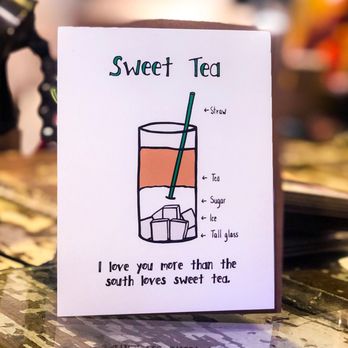 Sweet Tea
← Straw
← Tea
← Sugar
← Ice
← Tall glass
I love you more than the
south loves sweet tea.